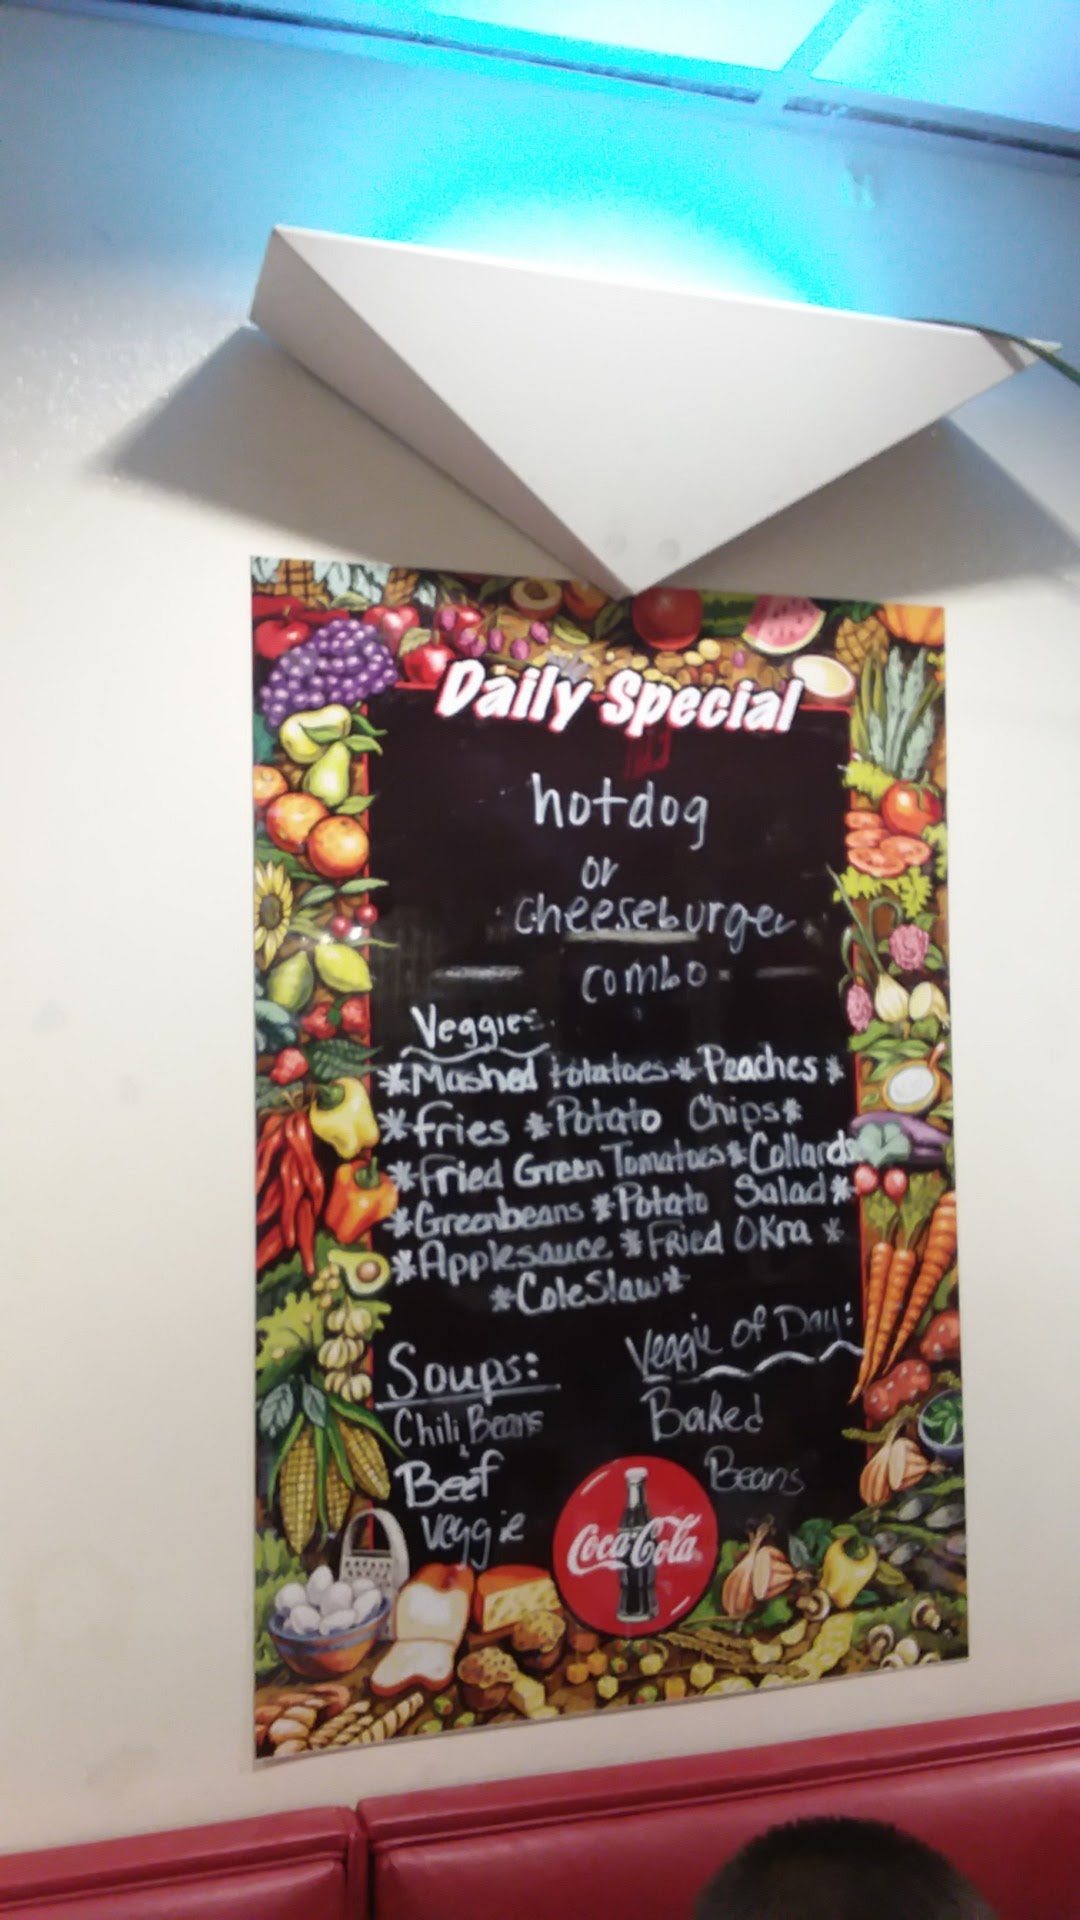 Daily Special
hotdog
or
cheeseburger
combo
Veggies
*Mashed Potatoes*Peaches*
*fries *Potato Chips*
*Fried Green Tomatoes*Collards
*Greenbeans *Potato Salad*
*Applesauce *Fried Okra *
*ColeSlaw*
Soups:
Chili Beans
Beef
Veggie
Veggie of Day:
Baked
Beans
Coca-Cola